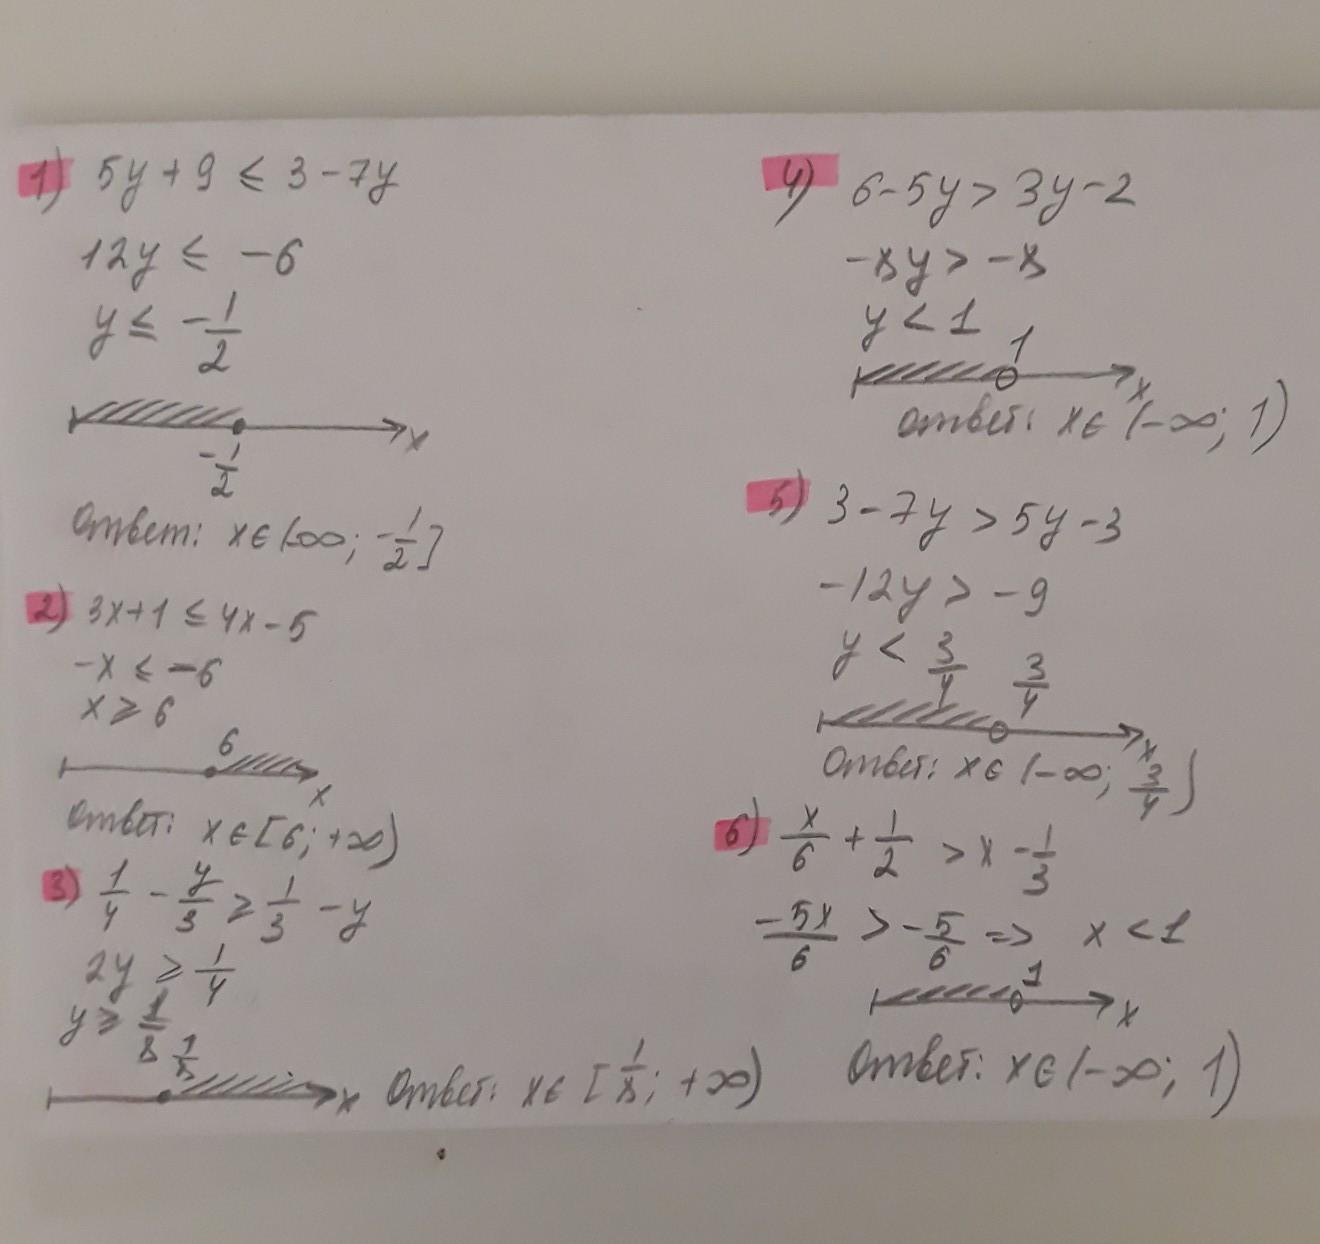 1) 5y + 9 ≤ 3 - 7y
12y ≤ -6
y ≤ -1/2
x
-1/2
Ответ: x ∈ (-∞; -1/2]
2) 3x + 1 ≤ 4x - 5
-x ≤ -6
x ≥ 6
6
x
Ответ: x ∈ [6; +∞)
3) 1/4 - y/3 ≥ 1/3 - y
2y ≥ 1/4
y ≥ 1/8
1/8
x
Ответ: x ∈ [1/8; +∞)
4) 6 - 5y > 3y - 2
-8y > -8
y < 1
1
x
Ответ: x ∈ (-∞; 1)
5) 3 - 7y > 5y - 3
-12y > -9
y < 3/4
3/4
x
Ответ: x ∈ (-∞; 3/4)
6) x/6 + 1/2 > x - 1/3
-5x/6 > -5/6 => x < 1
1
x
Ответ: x ∈ (-∞; 1)